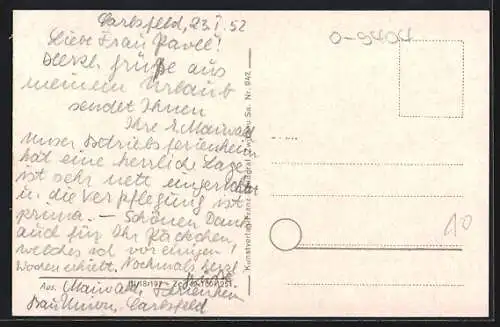 Carlsfeld, 23.I.52
Liebe Frau Pavel!
Herzl. grüße aus
meinem Urlaub
sendet Ihnen
Ihre E. Maiwald
Unser Betriebsferienheim
hat eine herrliche Lage,
ist sehr nett eingerichtet
u. die Verpflegung ist
prima. — Schönen Dank
auch für Ihr Päckchen,
welches ich vor einigen
Wochen erhielt. Nochmals herzl.
Grüße
Abs. Maiwald, Ferienheim
Bau Union, Carlsfeld
Kunstverlag Franz Landgraf, Zwickau Sa. Nr. 942
III/18/197
0-9404
10